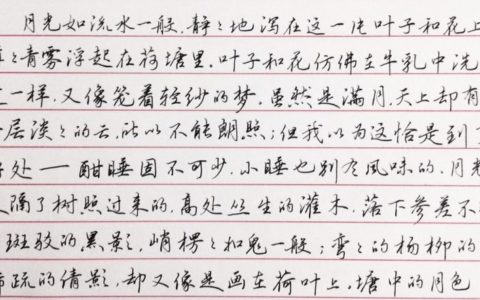 月光如流水一般,静々地泻在这一片叶子和花上
々青雾浮起在荷塘里.叶子和花仿佛在牛乳中洗
一样,又像笼着轻纱的梦.虽然是满月,天上却有
层淡々的云,所以不能朗照;但我以为这恰是到了
处——酣睡固不可少,小睡也别有风味的.月光
隔了树照过来的,高处丛生的灌木,落下参差不
斑驳的黑影,峭楞々如鬼一般;弯々的杨柳的
疏的倩影,却又像是画在荷叶上.塘中的月色